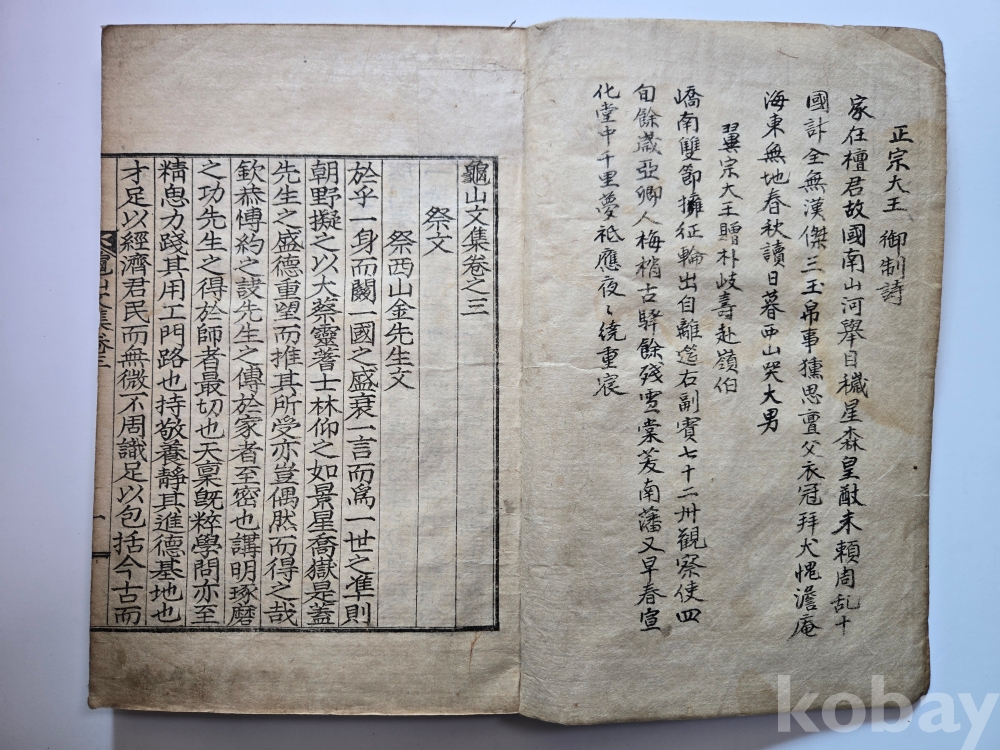 正宗大王 御制詩
家在檀君故國南山河擧目穢星森皇猷未賴周乱十
國計全無漢傑三玉帛事獯思亶父衣冠拜犬愧澹庵
海東無地春秋讀日暮西山哭大男
翼宗大王贈朴岐壽赴嶺伯
嶠南雙節擁征輪出自離筵右副賓七十二州觀察使四
旬餘歲亞卿人梅梢古驛餘殘雪棠芰南藩又早春宣
化堂中千里夢祗應夜〻繞重宸
龜山文集卷之三
祭文
祭西山金先生文
於乎一身而關一國之盛衰一言而爲一世之準則
朝野擬之以大蔡靈蓍士林仰之如景星喬嶽是蓋
先生之盛德重望而推其所受亦豈偶然而得之哉
欽恭博約之訣先生之傳於家者至密也講明琢磨
之功先生之得於師者最切也天稟旣粹學問亦至
精思力踐其用工門路也持敬養靜其進德基地也
才足以經濟君民而無微不周識足以包括今古而
龜山文集卷三
一
kobay